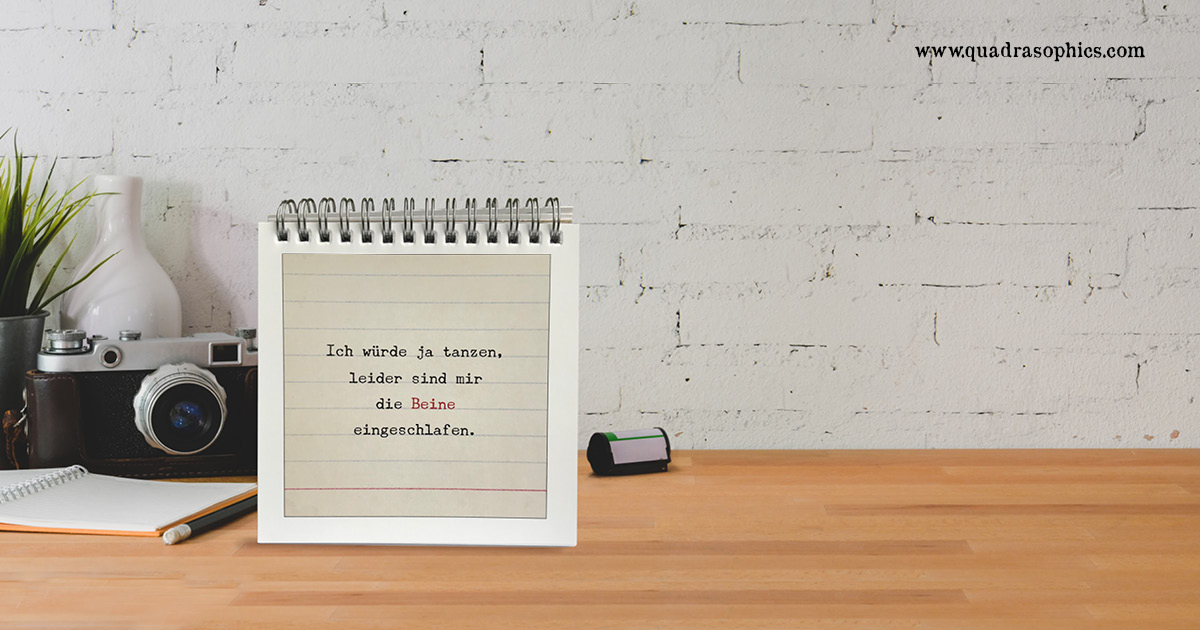 www.quadrasophics.com
Ich würde ja tanzen,
leider sind mir
die Beine
eingeschlafen.